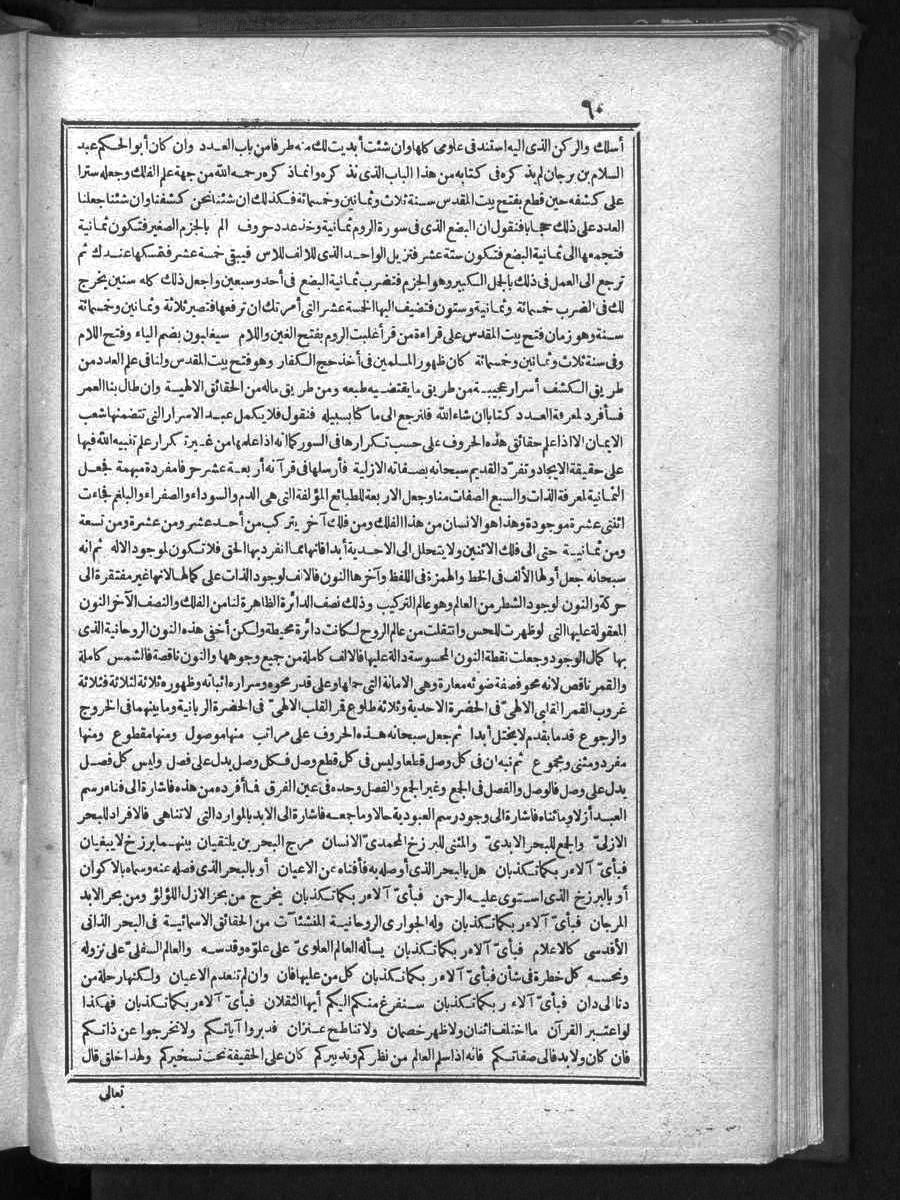 ٦٠
أسلك والركن الذى اليه استند فى علومى كلها وان شئت أبديت لك منه طرفا من باب العدد وان كان أبو الحكم عبد
السلام بن برجان لم يذكره فى كتابه من هذا الباب الذى نذكره وانما ذكره رحمه الله من جهة علم الفلك وجعله سترا
على كشفه حين قطع بفتح بيت المقدس سنة ثلاث وثمانين وخمسمائة فكذلك ان شئنا نحن كشفنا وان شئنا جعلنا
العدد على ذلك حجابا فنقول ان البضع الذى فى سورة الروم ثمانية وخذ عدد حروف الم بالجزم الصغير فتكون ثمانية
فتجمعها الى ثمانية البضع فتكون ستة عشر فتزيل الواحد الذى للالف للاس فيبقى خمسة عشر فتمسكها عندك ثم
ترجع الى العمل فى ذلك بالجمل الكبير وهو الجزم فتضرب ثمانية البضع فى أحد وسبعين واجعل ذلك كله سنين يخرج
لك فى الضرب خمسمائة وثمانية وستون فتضيف اليها الخمسة عشر التى أمرتك ان ترفعها فتصير ثلاثة وثمانين وخمسمائة
سنة وهو زمان فتح بيت المقدس على قراءة من قرأ غلبت الروم بفتح الغين واللام سيغلبون بضم الياء وفتح اللام
وفى سنة ثلاث وثمانين وخمسمائة كان ظهور المسلمين فى أخذ حج الكفار وهو فتح بيت المقدس ولنا فى علم العدد من
طريق الكشف أسرار عجيبة من طريق ما يقتضيه طبعه ومن طريق ماله من الحقائق الالهية وان طال بنا العمر
فسأفرد لمعرفة العدد كتابا ان شاء الله فلنرجع الى ما كنا بسبيله فنقول فلا يكمل عبد الاسرار التى تتضمنها شعب
الايمان الا اذا علم حقائق هذه الحروف على حسب تكرارها فى السور كما انه اذا علمها من غير تكرار علم تنبيه الله فيها
على حقيقة الايجاد وتفرّد القديم سبحانه بصفاته الازلية فأرسلها فى قرآنه أربعة عشر حرفا مفردة مبهمة فجعل
الثمانية لمعرفة الذات والسبع الصفات منا وجعل الاربعة للطبائع المؤلفة التى هى الدم والسوداء والصفراء والبلغم فجاءت
اثنتى عشرة موجودة وهذا هو الانسان من هذا الفلك ومن فلك آخر يتركب من أحد عشر ومن عشرة ومن تسعة
ومن ثمانية حتى الى فلك الاثنين ولا يتحلل الى الاحدية أبدا فانها مما انفرد بها الحق فلا تكون لموجود الاله ثم انه
سبحانه جعل أولها الألف فى الخط والهمزة فى اللفظ وآخرها النون فالالف لوجود الذات على كمالها لانها غير مفتقرة الى
حركة والنون لوجود الشطر من العالم وهو عالم التركيب وذلك نصف الدائرة الظاهرة لنا من الفلك والنصف الآخر النون
المعقولة عليها التى لوظهرت للحس وانتقلت من عالم الروح لكانت دائرة محيطة ولكن أخفى هذه النون الروحانية الذى
بها كمال الوجود وجعلت نقطة النون المحسوسة دالة عليها فالالف كاملة من جميع وجوهها والنون ناقصة فالشمس كاملة
والقمر ناقص لانه محو فصفة ضوئه معارة وهى الامانة التى حملها وعلى قدر محوه وسراره اثباته وظهوره ثلاثة لثلاثة فثلاثة
غروب القمر القلبى الالهىّ فى الحضرة الاحدية وثلاثة طلوع قمر القلب الالهىّ فى الحضرة الربانية وما بينهما فى الخروج
والرجوع قدما بقدم لا يختل أبدا ثم جعل سبحانه هذه الحروف على مراتب منها موصول ومنها مقطوع ومنها
مفرد ومثنى ومجموع ثم نبه ان فى كل وصل قطعا وليس فى كل قطع وصل فكل وصل يدل على فصل وليس كل فصل
يدل على وصل فالوصل والفصل فى الجمع وغير الجمع والفصل وحده فى عين الفرق فما أفرده من هذه فاشارة الى فناء رسم
العبد أزلا وما ثناه فاشارة الى وجود رسم العبودية حالا وما جمعه فاشارة الى الابد بالموارد التى لا تتناهى فالافراد للبحر
الازلىّ والجمع للبحر الابدىّ والمثنى للبرزخ المحمدىّ الانسان مرج البحرين يلتقيان بينهما برزخ لا يبغيان
فبأىّ آلاء ربكما تكذبان هل بالبحر الذى أوصله به فأفناه عن الاعيان أو بالبحر الذى فصله عنه وسماه بالاكوان
أو بالبرزخ الذى استوى عليه الرحمن فبأىّ آلاء ربكما تكذبان يخرج من بحر الازل اللؤلؤ ومن بحر الابد
المرجان فبأىّ آلاء ربكما تكذبان وله الجوارى الروحانية المنشئآت من الحقائق الاسمائية فى البحر الذاتى
الأقدسى كالاعلام فبأىّ آلاء ربكما تكذبان يسأله العالم العلوىّ على علوّه وقدسه والعالم السفلىّ على نزوله
ونحسه كل خطرة فى شأن فبأىّ آلاء ربكما تكذبان كل من عليها فان وان لم تنعدم الاعيان ولكنها رحلة من
دنا الى دان فبأىّ آلاء ربكما تكذبان سنفرغ منكم اليكم أيها الثقلان فبأىّ آلاء ربكما تكذبان فهكذا
لو اعتبر القرآن ما اختلف اثنان ولا ظهر خصمان ولا تناطح عنزان فدبروا آياتكم ولا تخرجوا عن ذاتكم
فان كان ولا بد فالى صفاتكم فانه اذا سلم العالم من نظركم وتدبيركم كان على الحقيقة تحت تسخيركم ولهذا خلق قال
تعالى